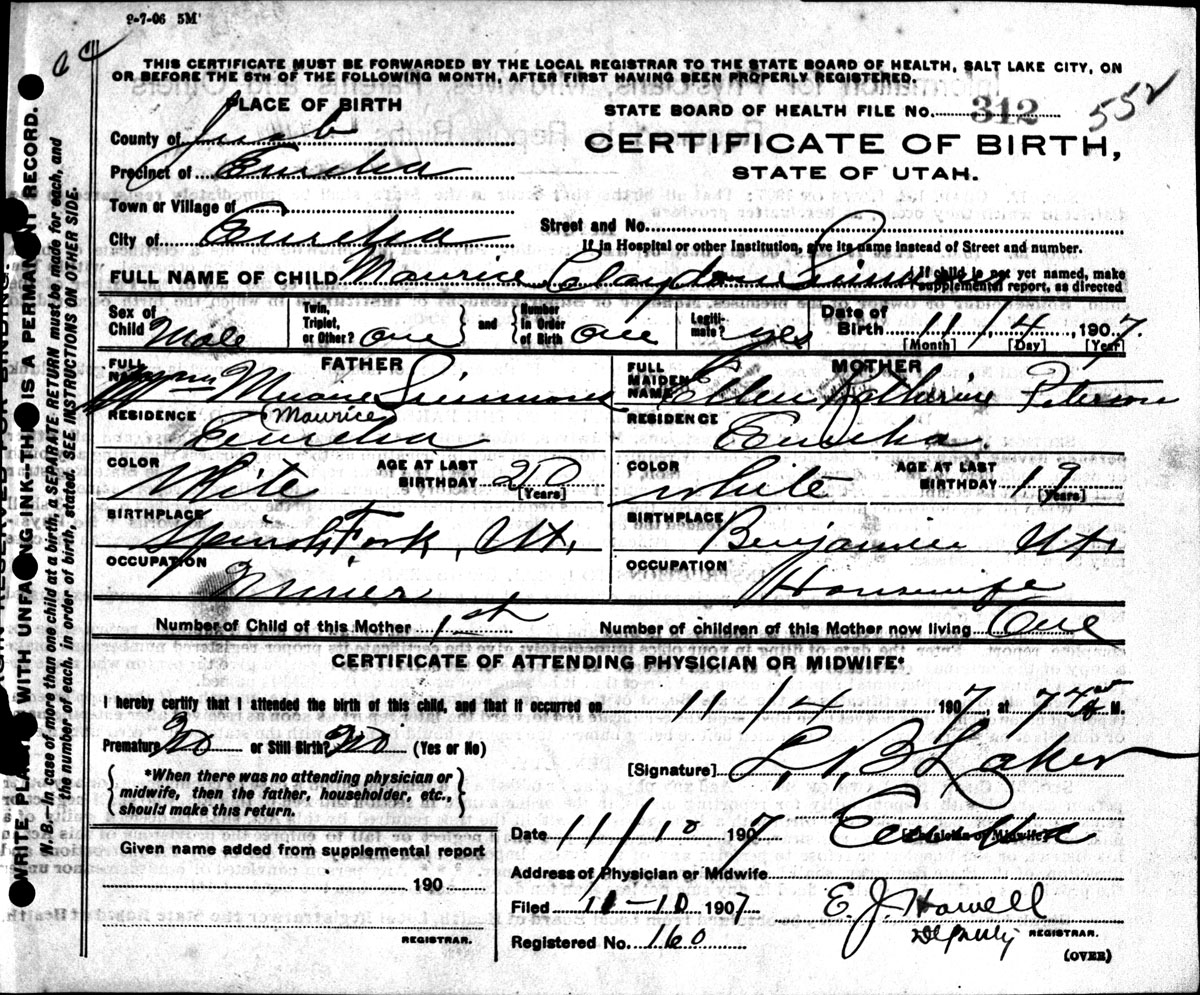 9-7-06 5M
THIS CERTIFICATE MUST BE FORWARDED BY THE LOCAL REGISTRAR TO THE STATE BOARD OF HEALTH, SALT LAKE CITY, ON
OR BEFORE THE 5TH OF THE FOLLOWING MONTH, AFTER FIRST HAVING BEEN PROPERLY REGISTERED.
PLACE OF BIRTH
County of Juab
Precinct of Eureka
Town or Village of
City of Eureka
STATE BOARD OF HEALTH FILE NO. 312 552
CERTIFICATE OF BIRTH,
STATE OF UTAH.
Street and No.
If in Hospital or other Institution, give its name instead of Street and number.
FULL NAME OF CHILD Maurice Clayton Simmons
If child is not yet named, make
supplemental report, as directed
Sex of Child Male
Twin, Triplet, or Other? one
and
Number in Order of Birth one
Legitimate? yes
Date of Birth 11 / 4, 1907
[Month] [Day] [Year]
FATHER
FULL NAME Simmons
Maurice
RESIDENCE Eureka
COLOR White
AGE AT LAST BIRTHDAY 20
[Years]
BIRTHPLACE Spanish Fork, Ut.
OCCUPATION Miner
MOTHER
FULL MAIDEN NAME Ellen Katherine Peterson
RESIDENCE Eureka
COLOR White
AGE AT LAST BIRTHDAY 19
[Years]
BIRTHPLACE Benjamin Ut.
OCCUPATION Housewife
Number of Child of this Mother 1st
Number of children of this Mother now living One
CERTIFICATE OF ATTENDING PHYSICIAN OR MIDWIFE*
I hereby certify that I attended the birth of this child, and that if occurred on 11 / 4 1907, at 7 M.
Premature? No or Still Birth? No (Yes or No)
*When there was no attending physician or
midwife, then the father, householder, etc.,
should make this return.
[Signature] L, B Laker
[Physician or Midwife]
Date 11/10 1907
Address of Physician or Midwife Eureka
Given name added from supplemental report
190
REGISTRAR.
Filed 11-10 1907 E. J. Howell
Deputy REGISTRAR.
Registered No. 160
(OVER)
WRITE PLAINLY WITH UNFADING INK—THIS IS A PERMANENT RECORD.
N. B.—In case of more than one child at a birth, a SEPARATE RETURN must be made for each, and
the number of each, in order of birth, stated. SEE INSTRUCTIONS ON OTHER SIDE.